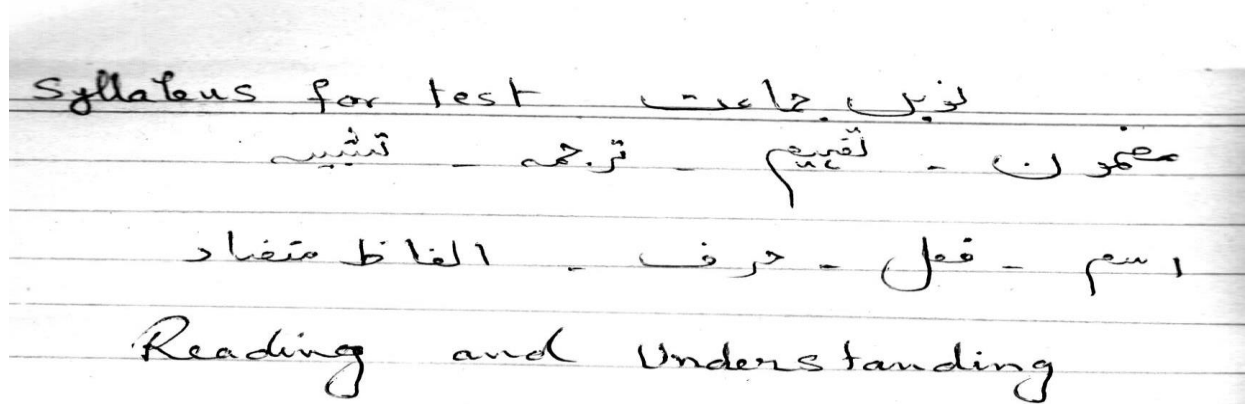 Syllabus for test نویں جماعت
مضمون - تفہیم - ترجمہ - تشبیہ
اسم - فعل - حرف - الفاظ متضاد
Reading and Understanding